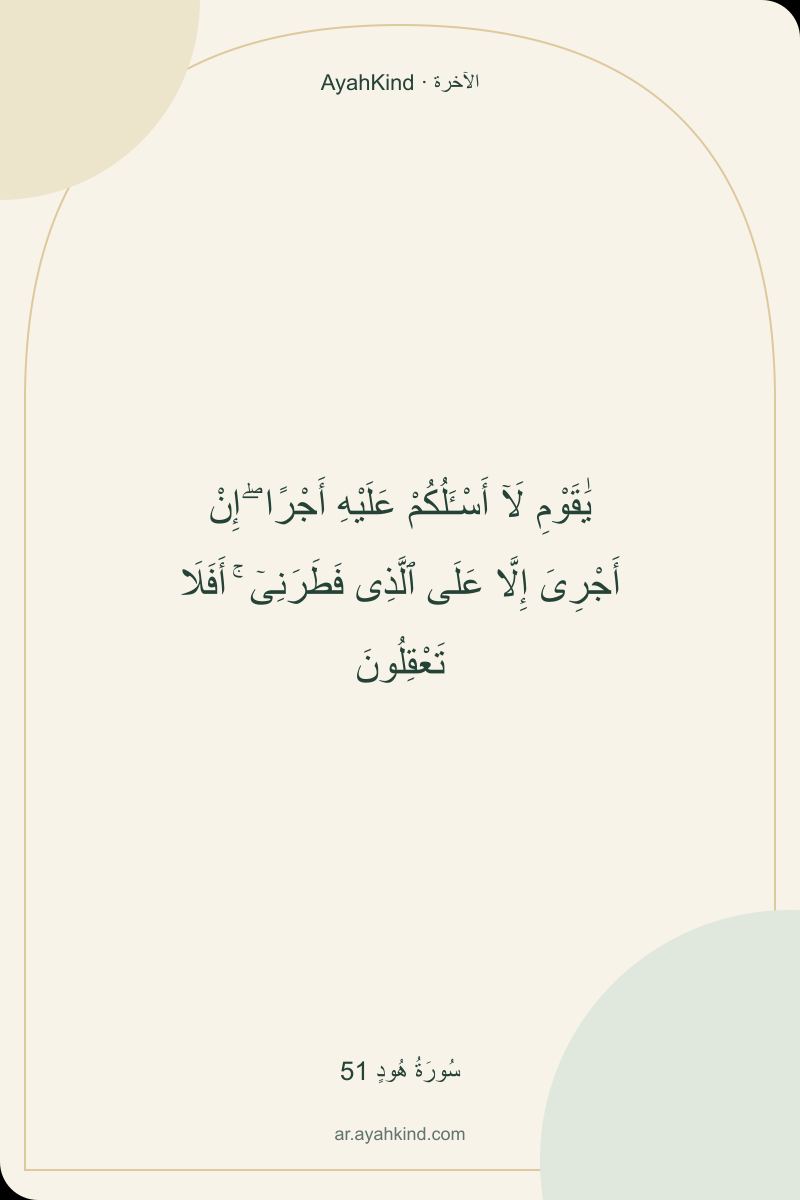 AyahKind · الآخرة
يَٰقَوْمِ لَآ أَسْـَٔلُكُمْ عَلَيْهِ أَجْرًا ۖ إِنْ
أَجْرِىَ إِلَّا عَلَى ٱلَّذِى فَطَرَنِىٓ ۚ أَفَلَا
تَعْقِلُونَ
سُورَةُ هُودٍ 51
ar.ayahkind.com